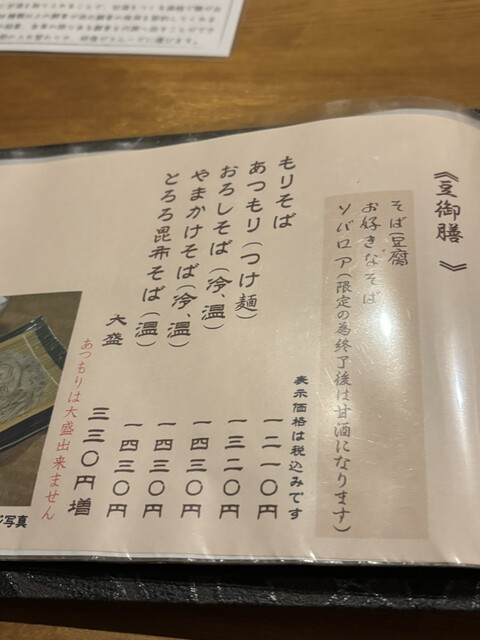 《豆御膳》
そば豆腐
お好きなそば
ソバロア(限定の為終了後は甘酒になります)
表示価格は税込みです
もりそば 一二一〇円
あつもり(つけ麺) 一三二〇円
おろしそば(冷、温) 一四三〇円
やまかけそば(冷、温) 一四三〇円
とろろ昆布そば(温) 一四三〇円
大盛 三三〇円増
あつもりは大盛出来ません
写真